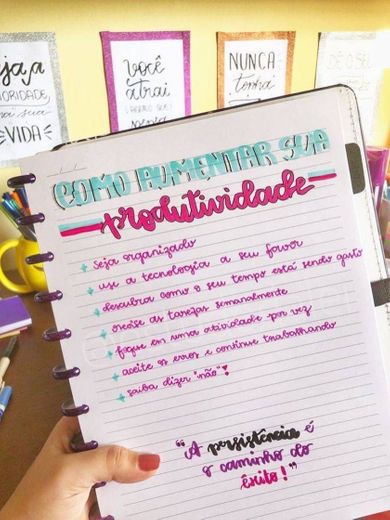 seja a
PRIORIDADE
da sua
VIDA
você
atrai
NUNCA
tenha
DÊ O SEU
COMO AUMENTAR SUA
produtividade
+ seja organizado
+ use a tecnologia a seu favor
+ descubra como o seu tempo está sendo gasto
+ revise as tarefas semanalmente
+ foque em uma atividade por vez
+ aceite os erros e continue trabalhando
+ saiba dizer "não"!
"A persistência é
o caminho do
êxito!"